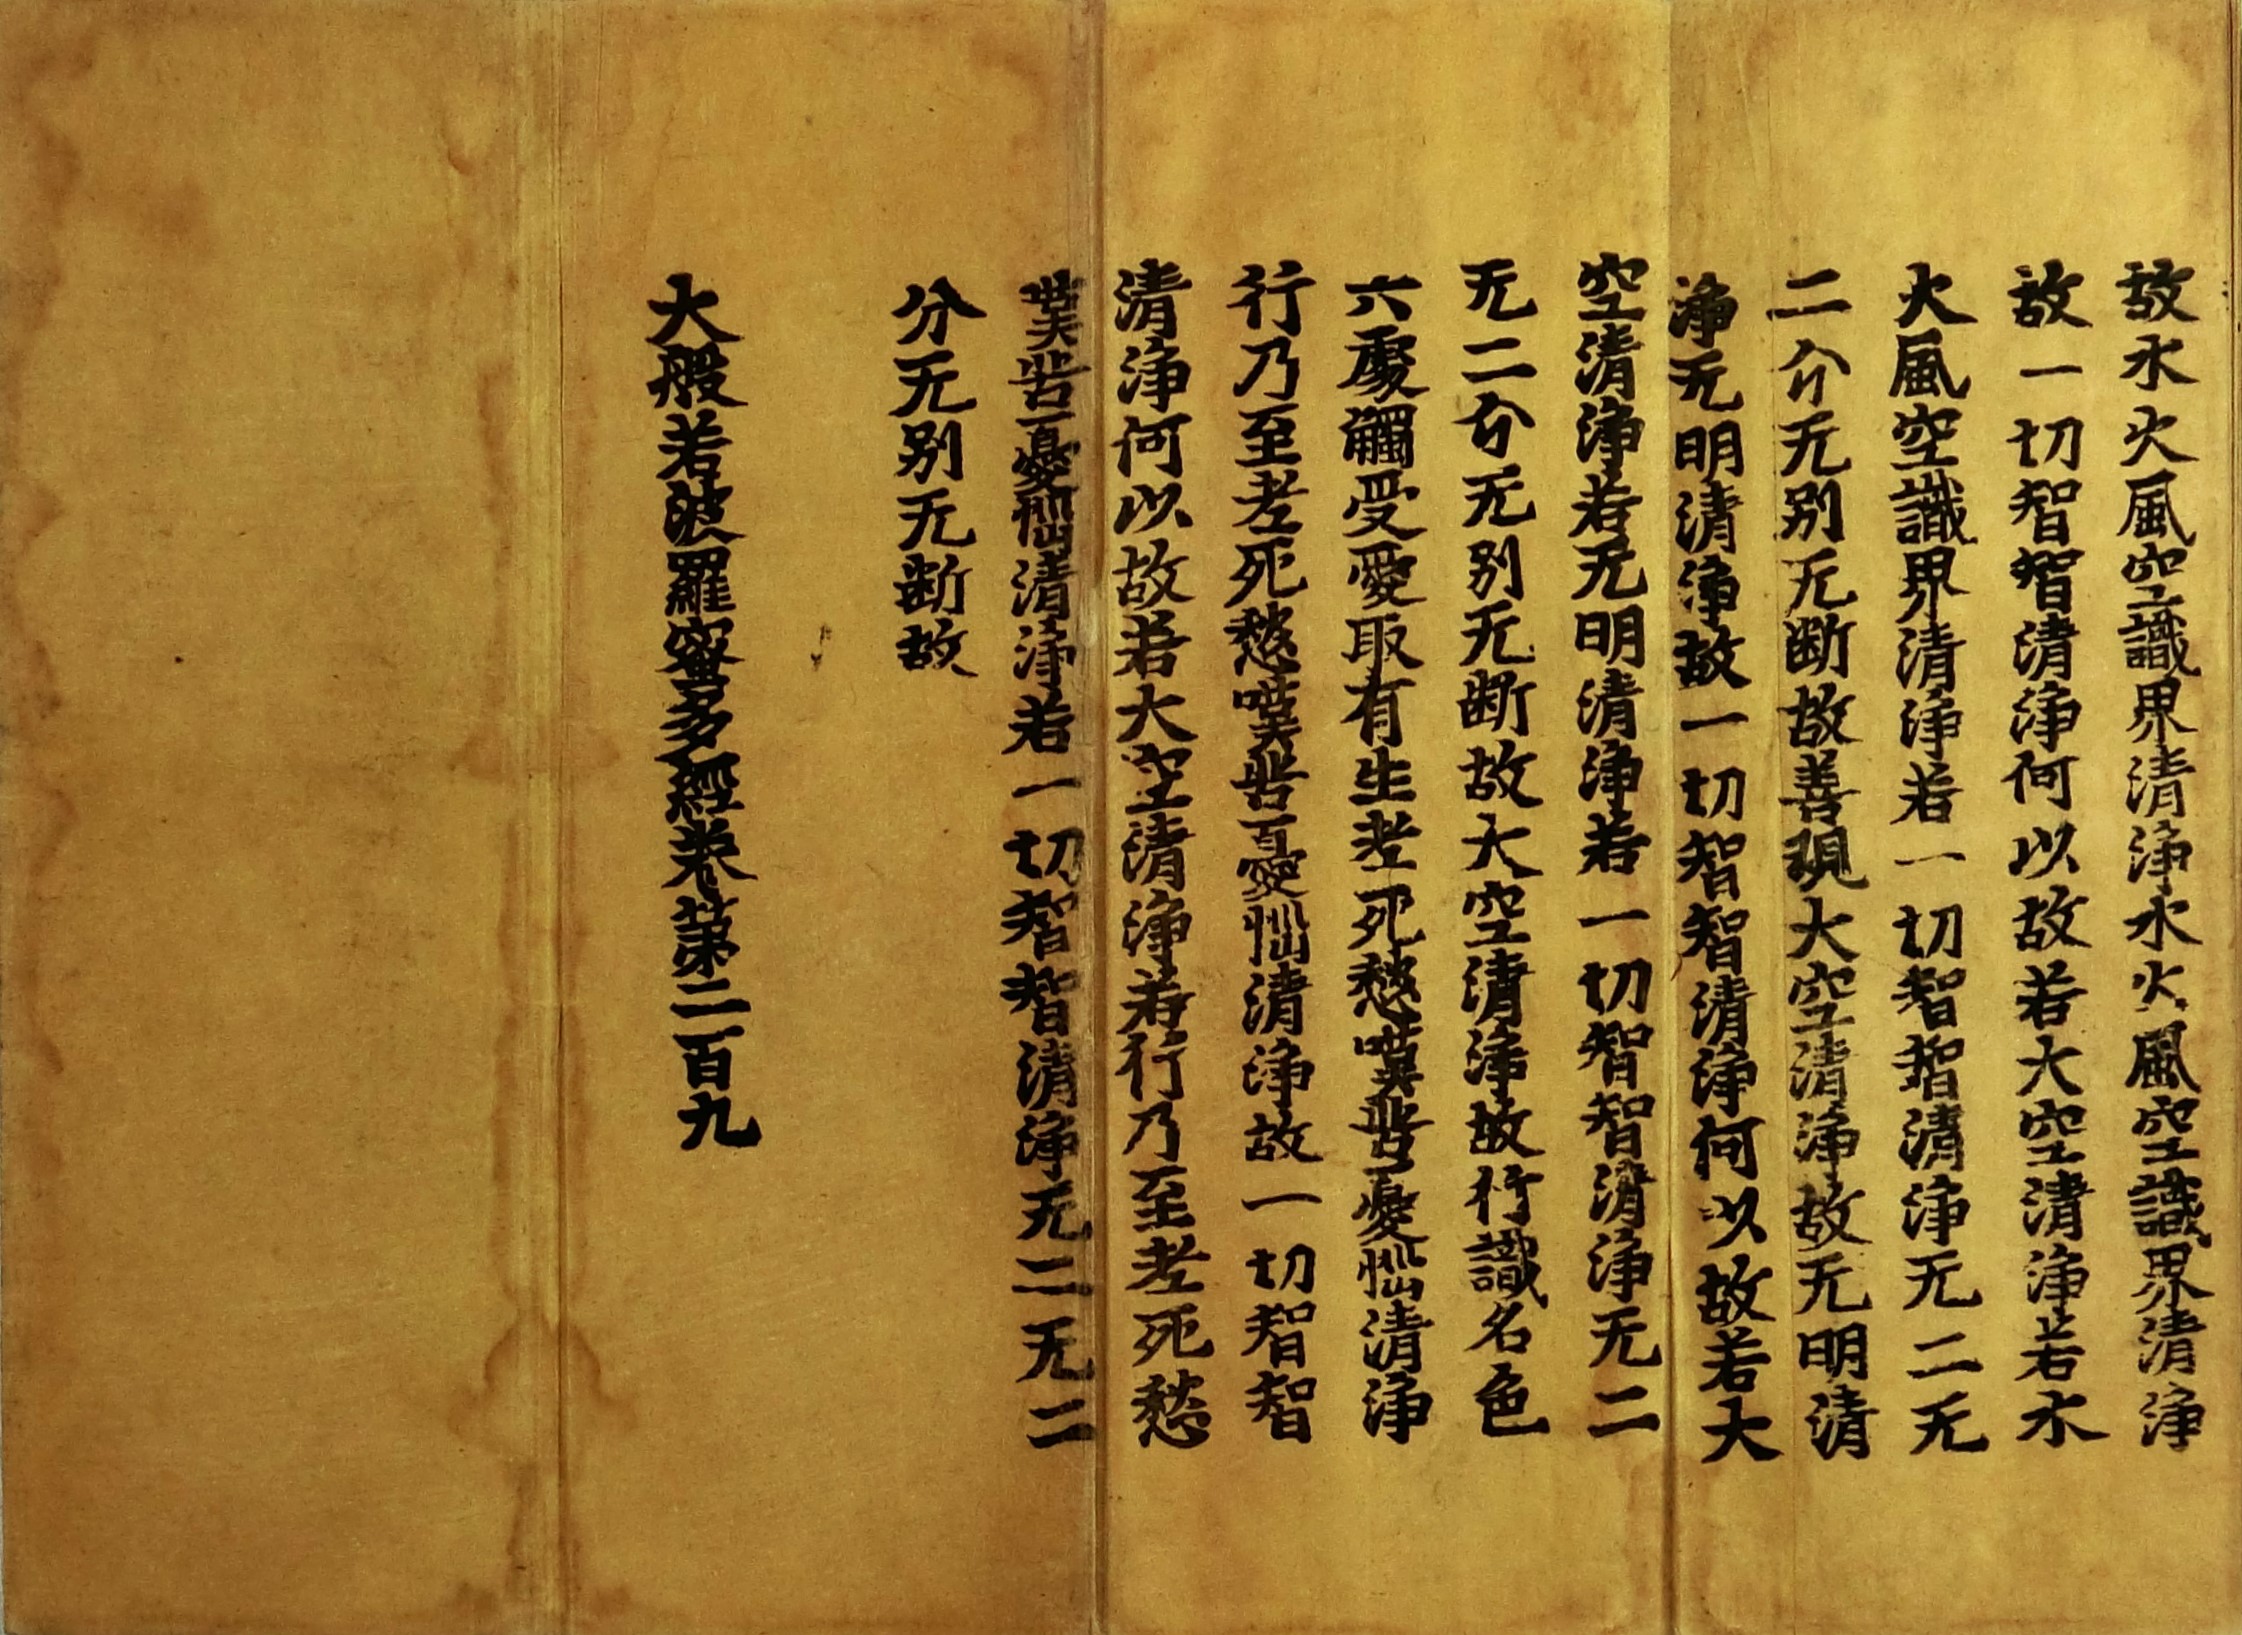 故水火風空識界清淨水火風空識界清淨
故一切智智清淨何以故若大空清淨若水
火風空識界清淨若一切智智清淨无二无
二分无别无断故善現大空清淨故无明清
淨无明清淨故一切智智清淨何以故若大
空清淨若无明清淨若一切智智清淨无二
无二分无别无断故大空清淨故行識名色
六處觸受愛取有生老死愁嘆苦憂惱清淨
行乃至老死愁嘆苦憂惱清淨故一切智智
清淨何以故若大空清淨若行乃至老死愁
嘆苦憂惱清淨若一切智智清淨无二无二
分无别无断故
大般若波羅蜜多經卷第二百九